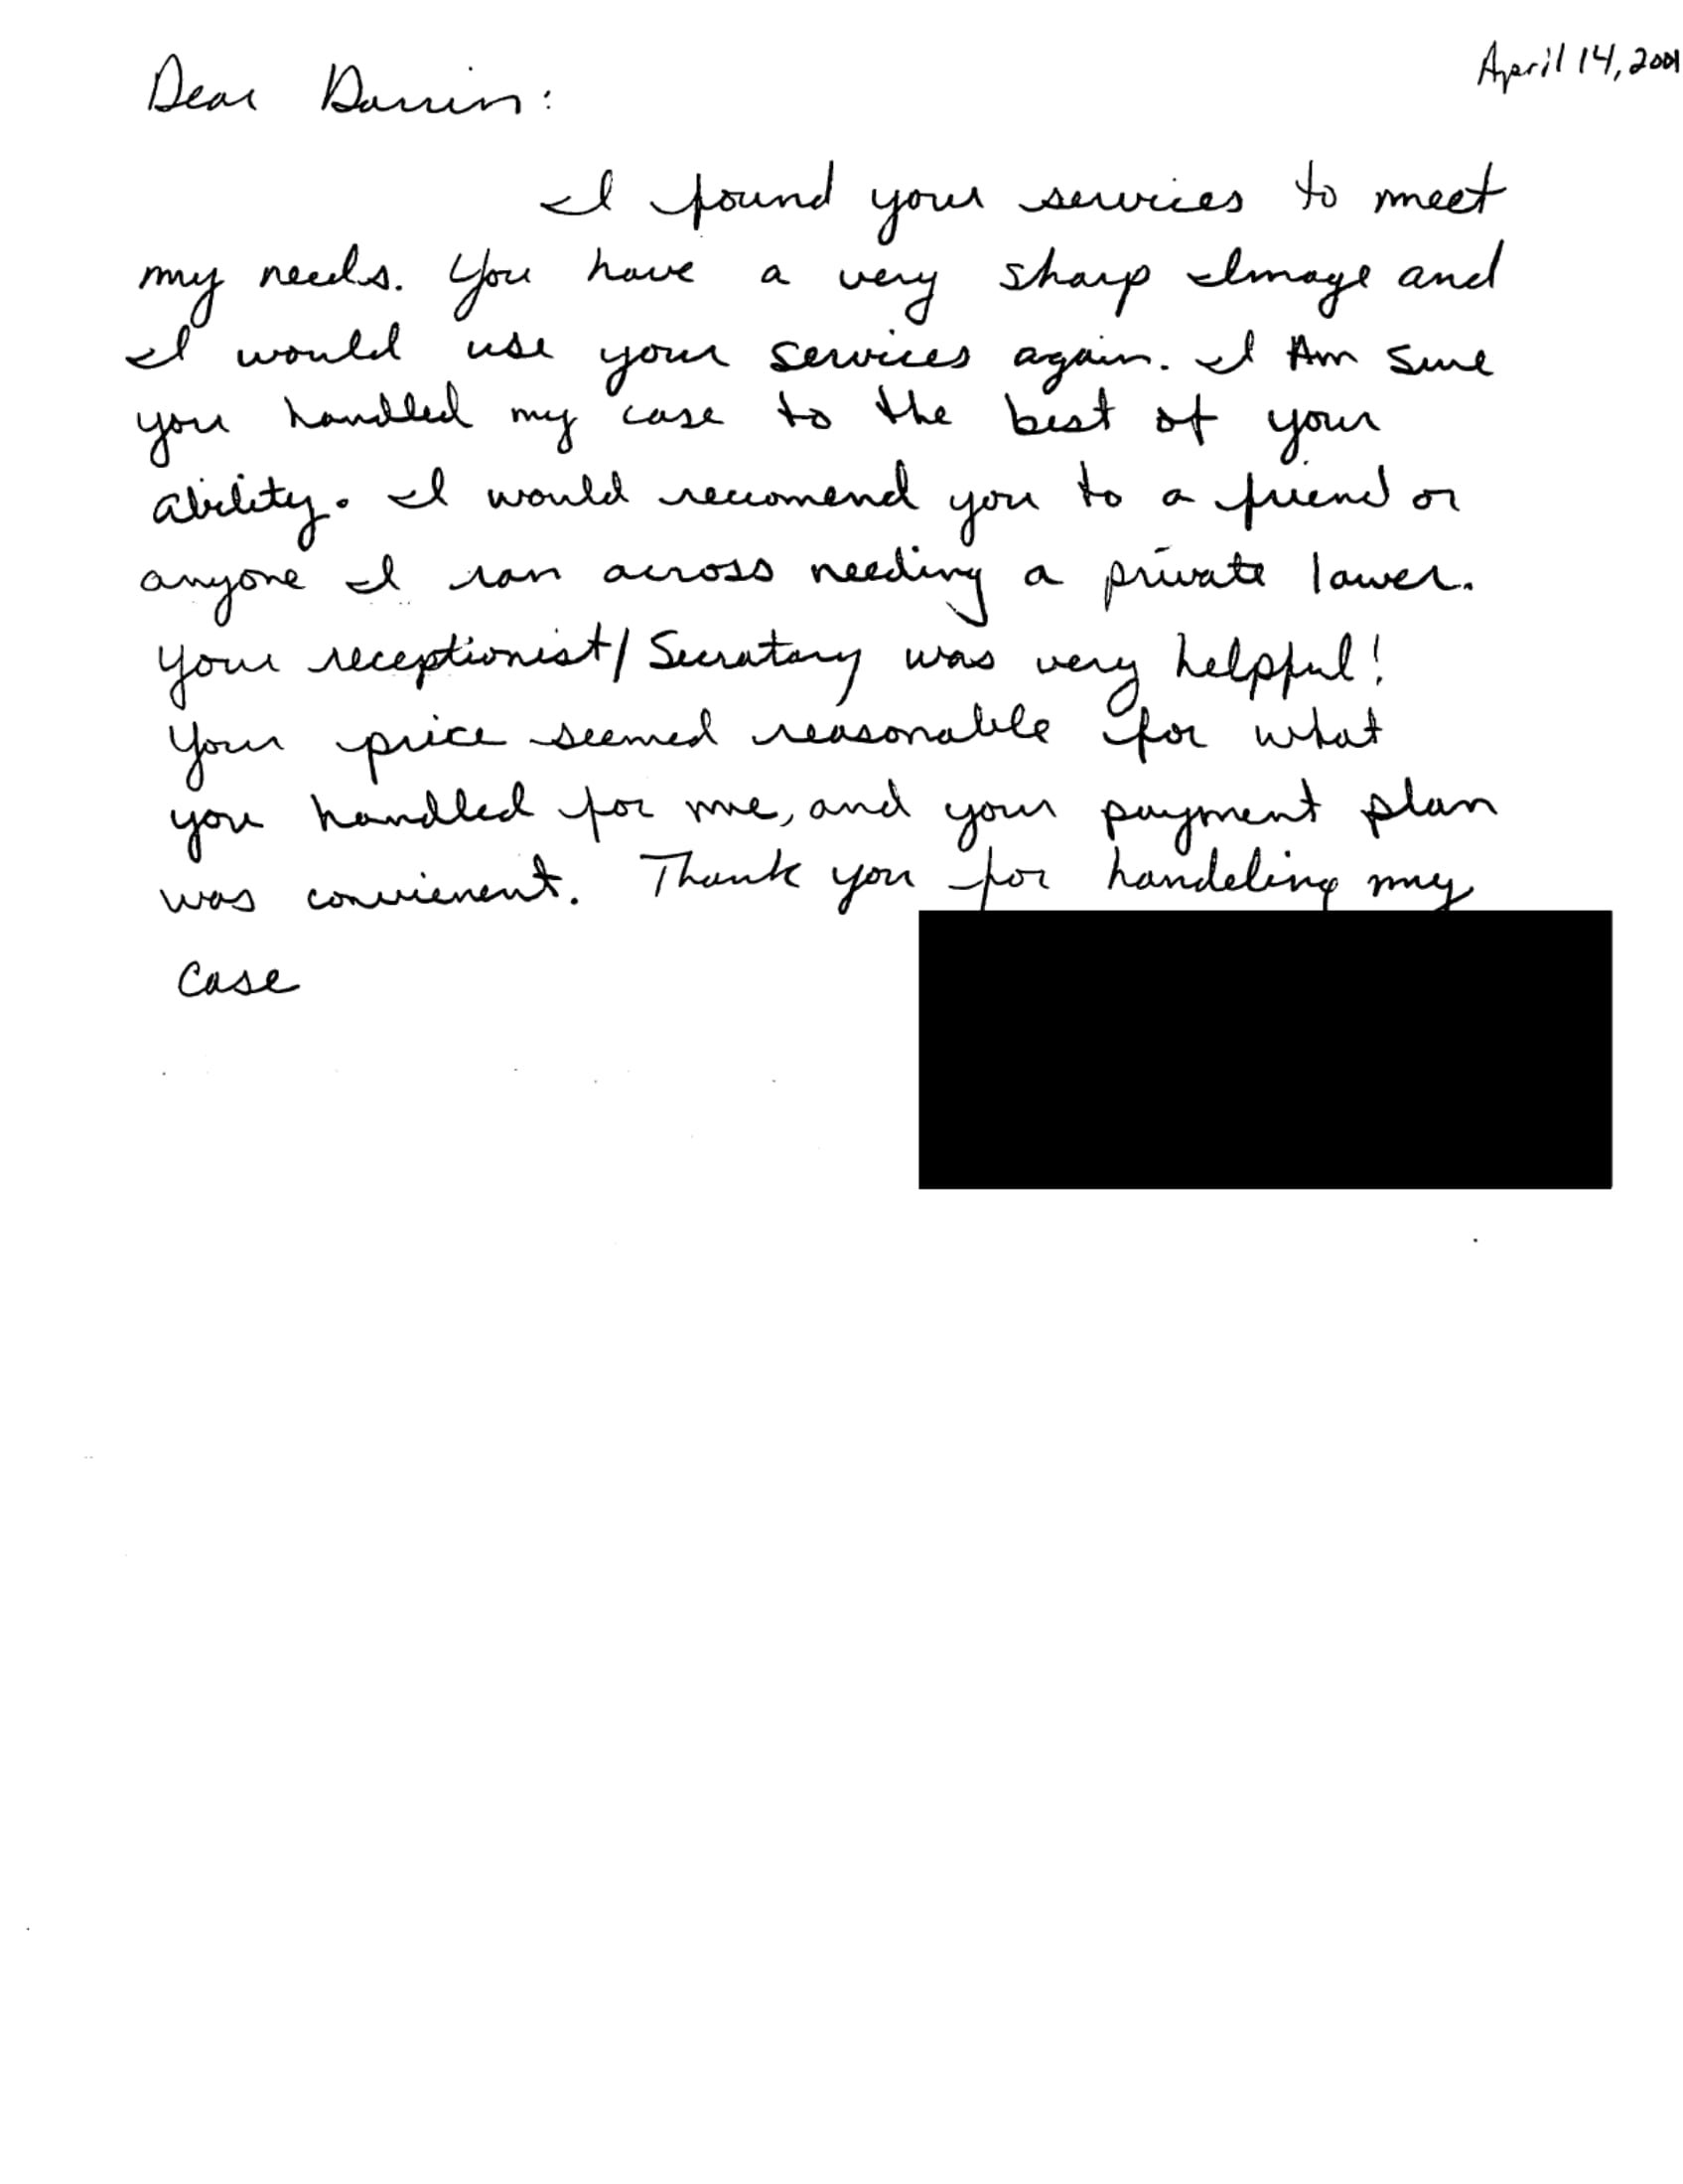 April 14, 2001
Dear Darrin:
I found your services to meet
my needs. You have a very sharp Image and
I would use your services again. I Am sure
you handled my case to the best of your
ability. I would reccomend you to a friend or
anyone I ran across needing a private lawer.
Your receptionist/Secratary was very helpful!
Your price seemed reasonable for what
you handled for me, and your payment plan
was convienent. Thank you for handeling my
case